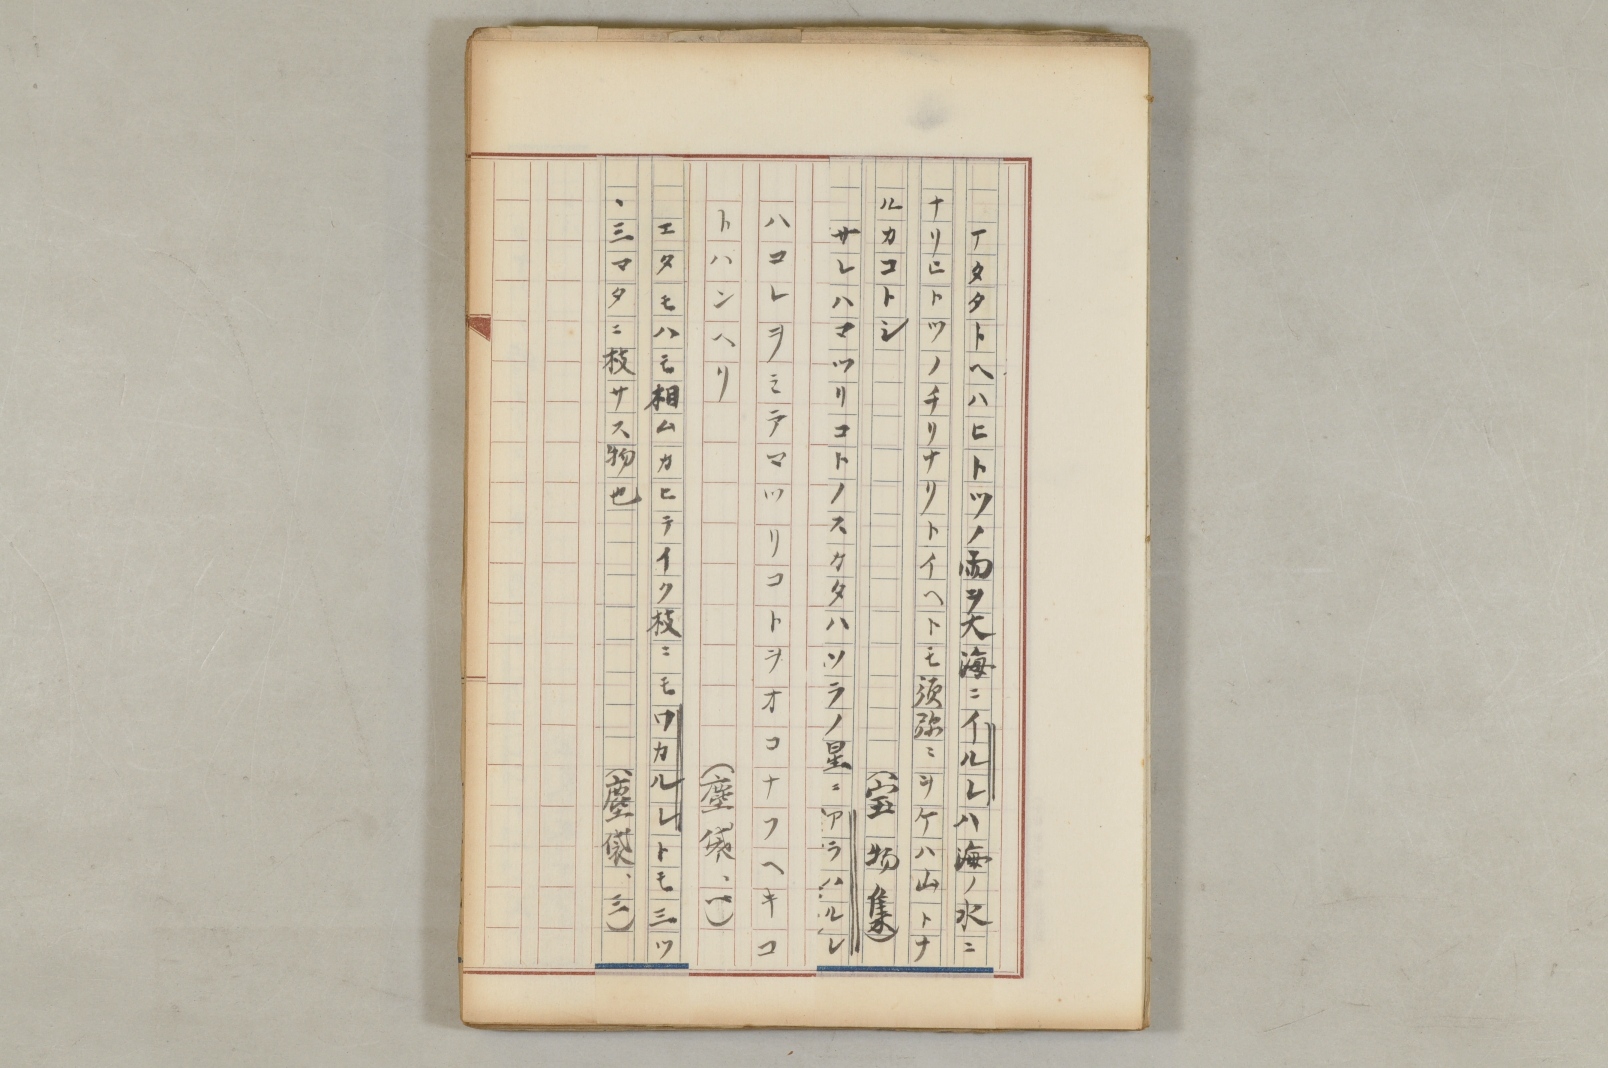 アタタトヘハヒトツノ雨ヲ大海ニイルレハ海ノ水ニ
ナリヒトツノチリナリトイヘトモ須弥ニヲケハ山トナ
ルカコトシ（宝物集）
サレハマツリコトノスカタハソラノ星ニアラハルレ
ハコレヲミテマツリコトヲオコナフヘキコ
トハンヘリ（塵袋、一）
エタモハモ相ムカヒテイク枝ニモワカルレトモ三ツ
、三マタニ枝サス物也（塵袋、三）